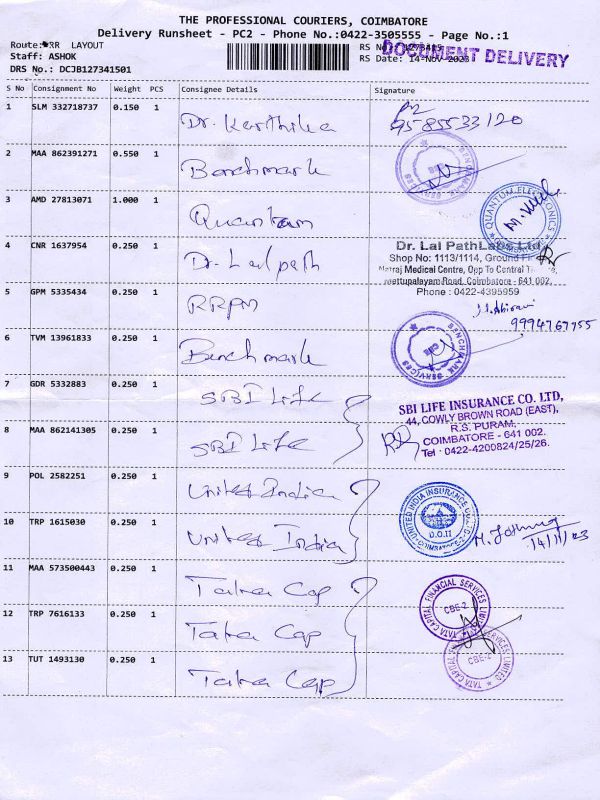 THE PROFESSIONAL COURIERS, COIMBATORE
Delivery Runsheet - PC2 - Phone No.:0422-3505555 - Page No.:1
Route: RR LAYOUT
Staff: ASHOK
DRS No.: DCJB127341501
RS No
RS Date: 14-Nov-2023
DOCUMENT DELIVERY
S No Consignment No Weight PCS Consignee Details Signature
1 SLM 332718737 0.150 1 Dr. Karthika
2 MAA 862391271 0.550 1 Benchmark
BENCHMARK SERVICES
3 AMD 27813071 1.000 1 Quantum
QUANTUM ELECTRONICS
4 CNR 1637954 0.250 1 Dr. Lal path
Dr. Lal PathLabs Ltd.
Shop No: 1113/1114, Ground
Medical Centre, Opp To Central
Mettupalayam Road, Coimbatore - 641 002.
Phone : 0422-4395959
5 GPM 5335434 0.250 1 RRPM
9994767755
6 TVM 13961833 0.250 1 Benchmark
BENCHMARK SERVICES
7 GDR 5332883 0.250 1 SBI Life
SBI LIFE INSURANCE CO. LTD,
44, COWLY BROWN ROAD (EAST),
R.S. PURAM,
COIMBATORE - 641 002.
Tel : 0422-4200824/25/26.
8 MAA 862141305 0.250 1 SBI Life
9 POL 2582251 0.250 1 United India
10 TRP 1615030 0.250 1 United India
UNITED INDIA INSURANCE
D.O.II
COIMBATORE
14/11/23
11 MAA 573500443 0.250 1 Tata Cap
12 TRP 7616133 0.250 1 Tata Cap
TATA CAPITAL FINANCIAL SERVICES LIMITED
CBE-2
13 TUT 1493130 0.250 1 Tata Cap
CBE-2